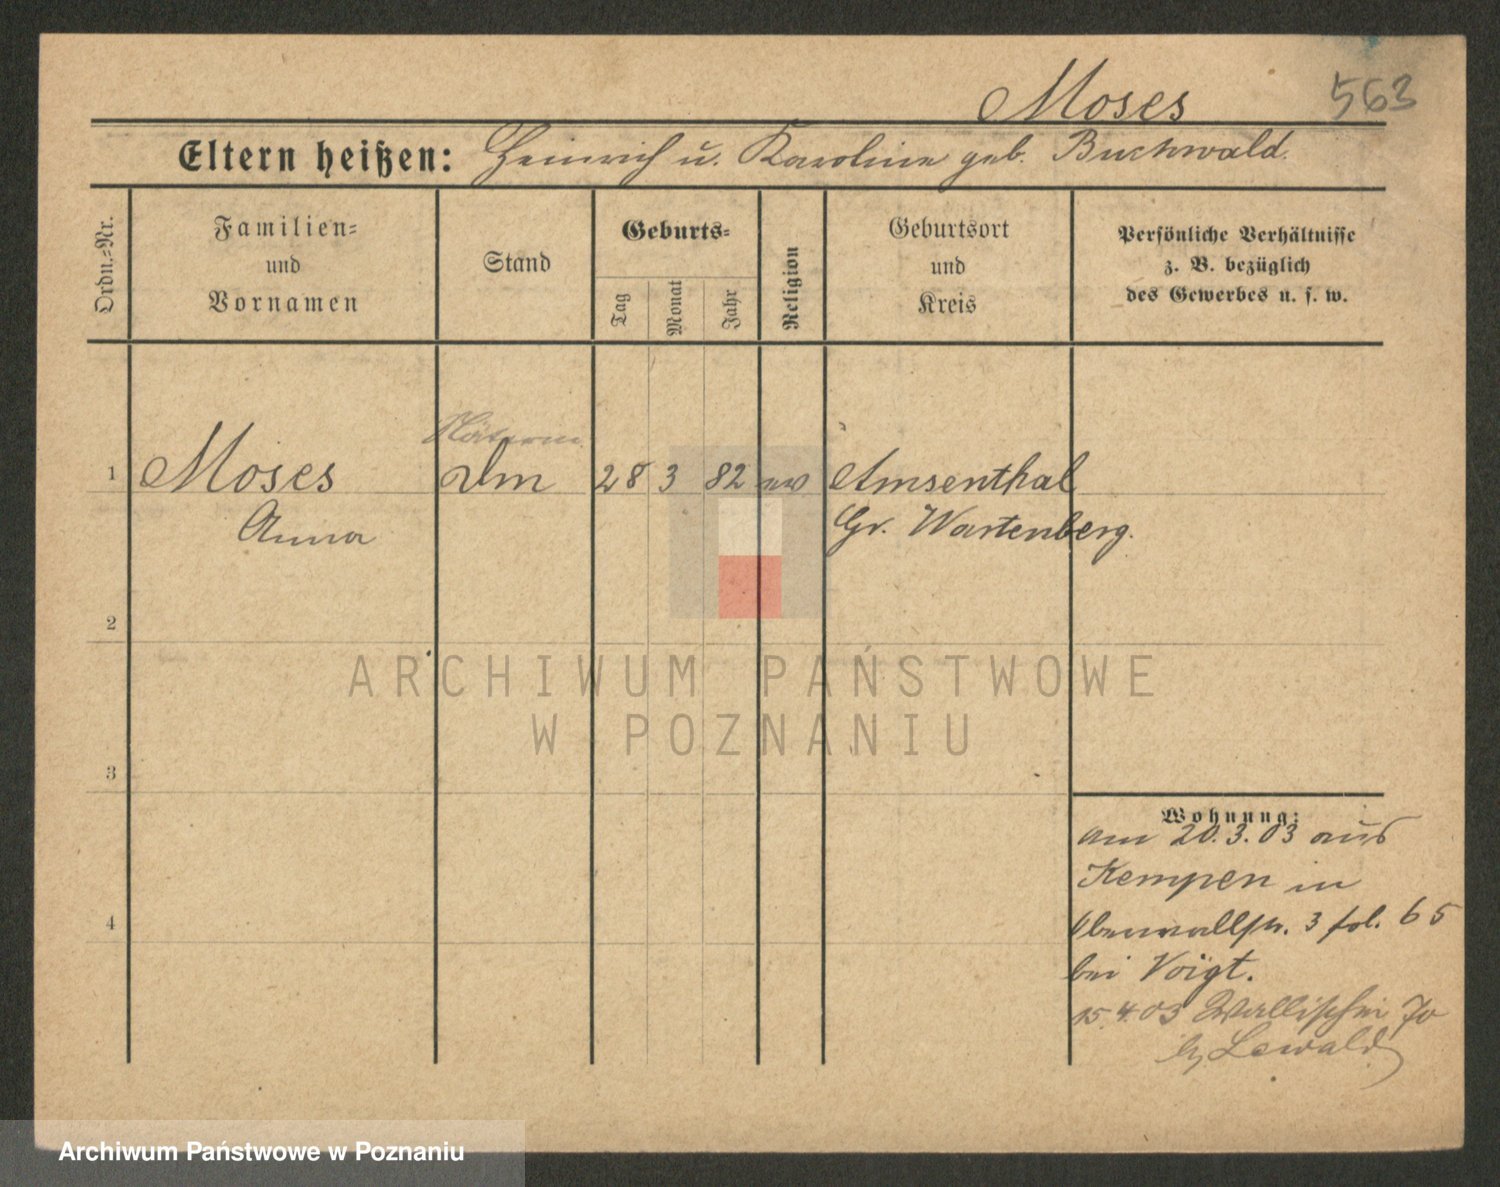 Moses 563
Eltern heißen: Heinrich u. Karoline geb. Buchwald.
Ordn.-Nr.
Familien-
und
Vornamen
Stand
Geburts-
Tag
Monat
Jahr
Religion
Geburtsort
und
Kreis
Persönliche Verhältnisse
z. B. bezüglich
des Gewerbes u. s. w.
Näterin
1 Moses 28 3 82 ev Amsenthal
Anna Gr. Wartenberg.
2
ARCHIWUM PAŃSTWOWE
W POZNANIU
3
Wohnung:
am 20.3.03 aus
Kempen in
4
Oberwallstr. 3 fol. 65
bei Voigt.
15.4.03 Wallischei 70
b/ Lewald
Archiwum Państwowe w Poznaniu